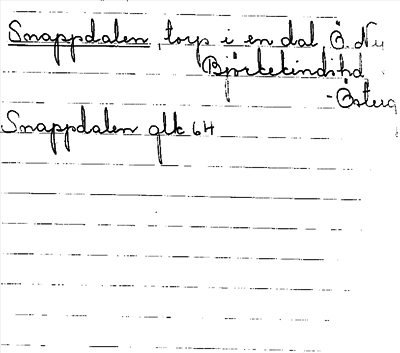 Snappdalen, torp i en dal, Ö. Ny
Björkekinds hd
- Österg
Snappdalen glk 64